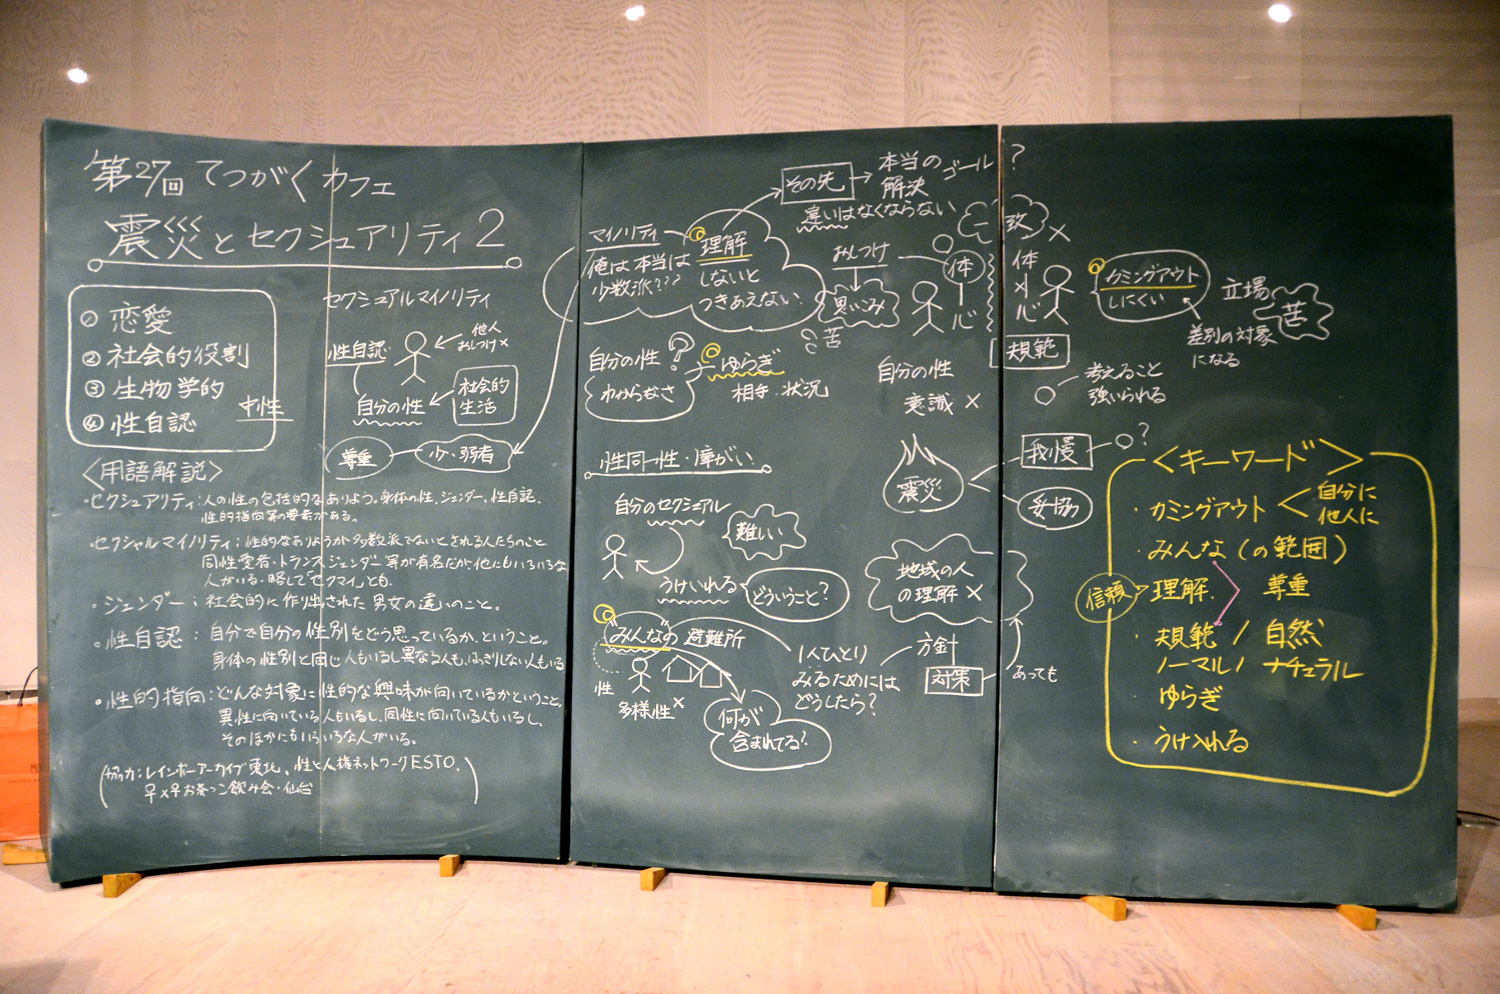 第27回 てつがくカフェ
震災とセクシュアリティ2
① 恋愛
② 社会的役割
③ 生物学的
④ 性自認
中性
セクシュアルマイノリティ
性自認
他人
おしつけ×
自分の性
社会的
生活
尊重
少・弱者
〈用語解説〉
・セクシュアリティ：人の性の包括的なありよう。身体の性、ジェンダー、性自認、
性的指向等の要素がある。
・セクシャルマイノリティ：性的なありようが多数派でないとされる人たちのこと
同性愛者・トランスジェンダー等が有名だが、他にもいろいろな
人がいる・略して「セクマイ」とも。
・ジェンダー：社会的に作り出された男女の違いのこと。
・性自認：自分で自分の性別をどう思っているか、ということ。
身体の性別と同じ人もいるし異なる人も、はっきりしない人もいる
・性的指向：どんな対象に性的な興味が向いているかということ。
異性に向いている人もいるし、同性に向いている人もいるし、
そのほかにもいろいろな人がいる。
(協力：レインボーアーカイブ東北、性と人権ネットワークESTO、
♀×♀お茶っこ飲み会・仙台)
マイノリティ
俺は本当は
少数派???
理解
しないと
つきあえない
その先
本当の
解決
ゴール
?
違いはなくならない
おしつけ
思いこみ
苦
体
心
体
×
心
×
規範
自分の性
わからなさ
?
ゆらぎ
相手・状況
自分の性
意識 ×
性同一性・障がい
自分のセクシュアル
難しい
うけいれる
どういうこと?
震災
我慢
?
妥協
地域の人
の理解 ×
"みんなの"避難所
性
多様性×
何が
含まれてる?
1人ひとり
みるためには
どうしたら?
方針
対策
あっても
カミングアウト
しにくい
立場
苦
差別の対象
になる
考えること
強いられる
〈キーワード〉
・カミングアウト
自分に
他人に
・みんな(の範囲)
信頼
理解
尊重
・規範/自然
ノーマル/ナチュラル
ゆらぎ
・うけ入れる